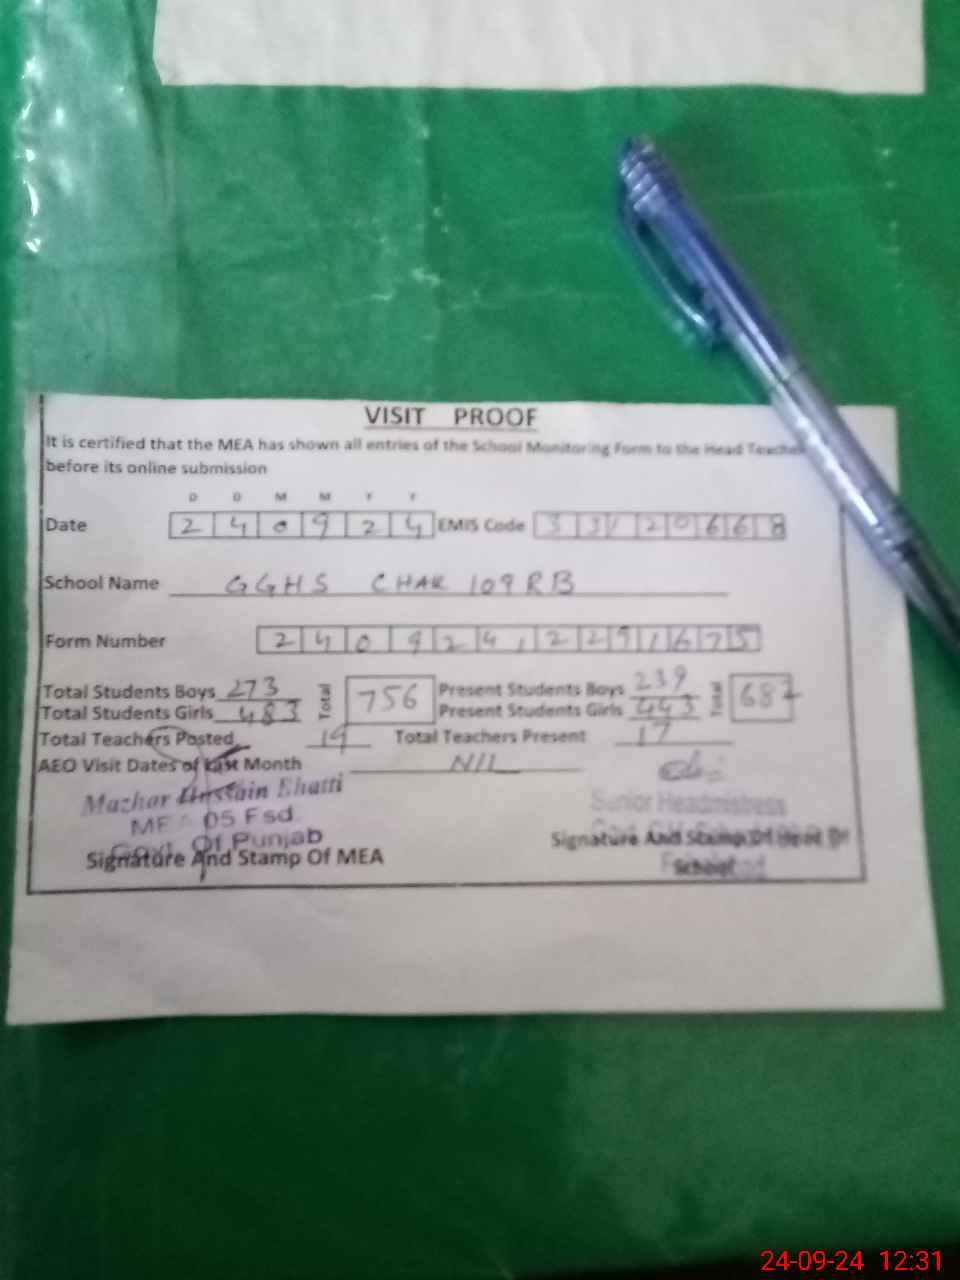 VISIT PROOF
It is certified that the MEA has shown all entries of the School Monitoring Form to the Head Teacher
before its online submission
D D M M Y Y
Date 2 4 0 9 2 4 EMIS Code 3 3 1 2 0 6 6 8
School Name GGHS CHAK 109 RB
Form Number 2 4 0 9 2 4 1 2 2 9 1 6 7 5
Total Students Boys 273 Total 756 Present Students Boys 239 Total 682
Total Students Girls 483 Present Students Girls 443
Total Teachers Posted 19 Total Teachers Present 17
AEO Visit Dates of Last Month NIL
Mazhar Hussain Bhatti
MEA 05 Fsd.
Govt. Of Punjab
Signature And Stamp Of MEA
Senior Headmistress
Signature And Stamp Of Head Of
School
24-09-24 12:31